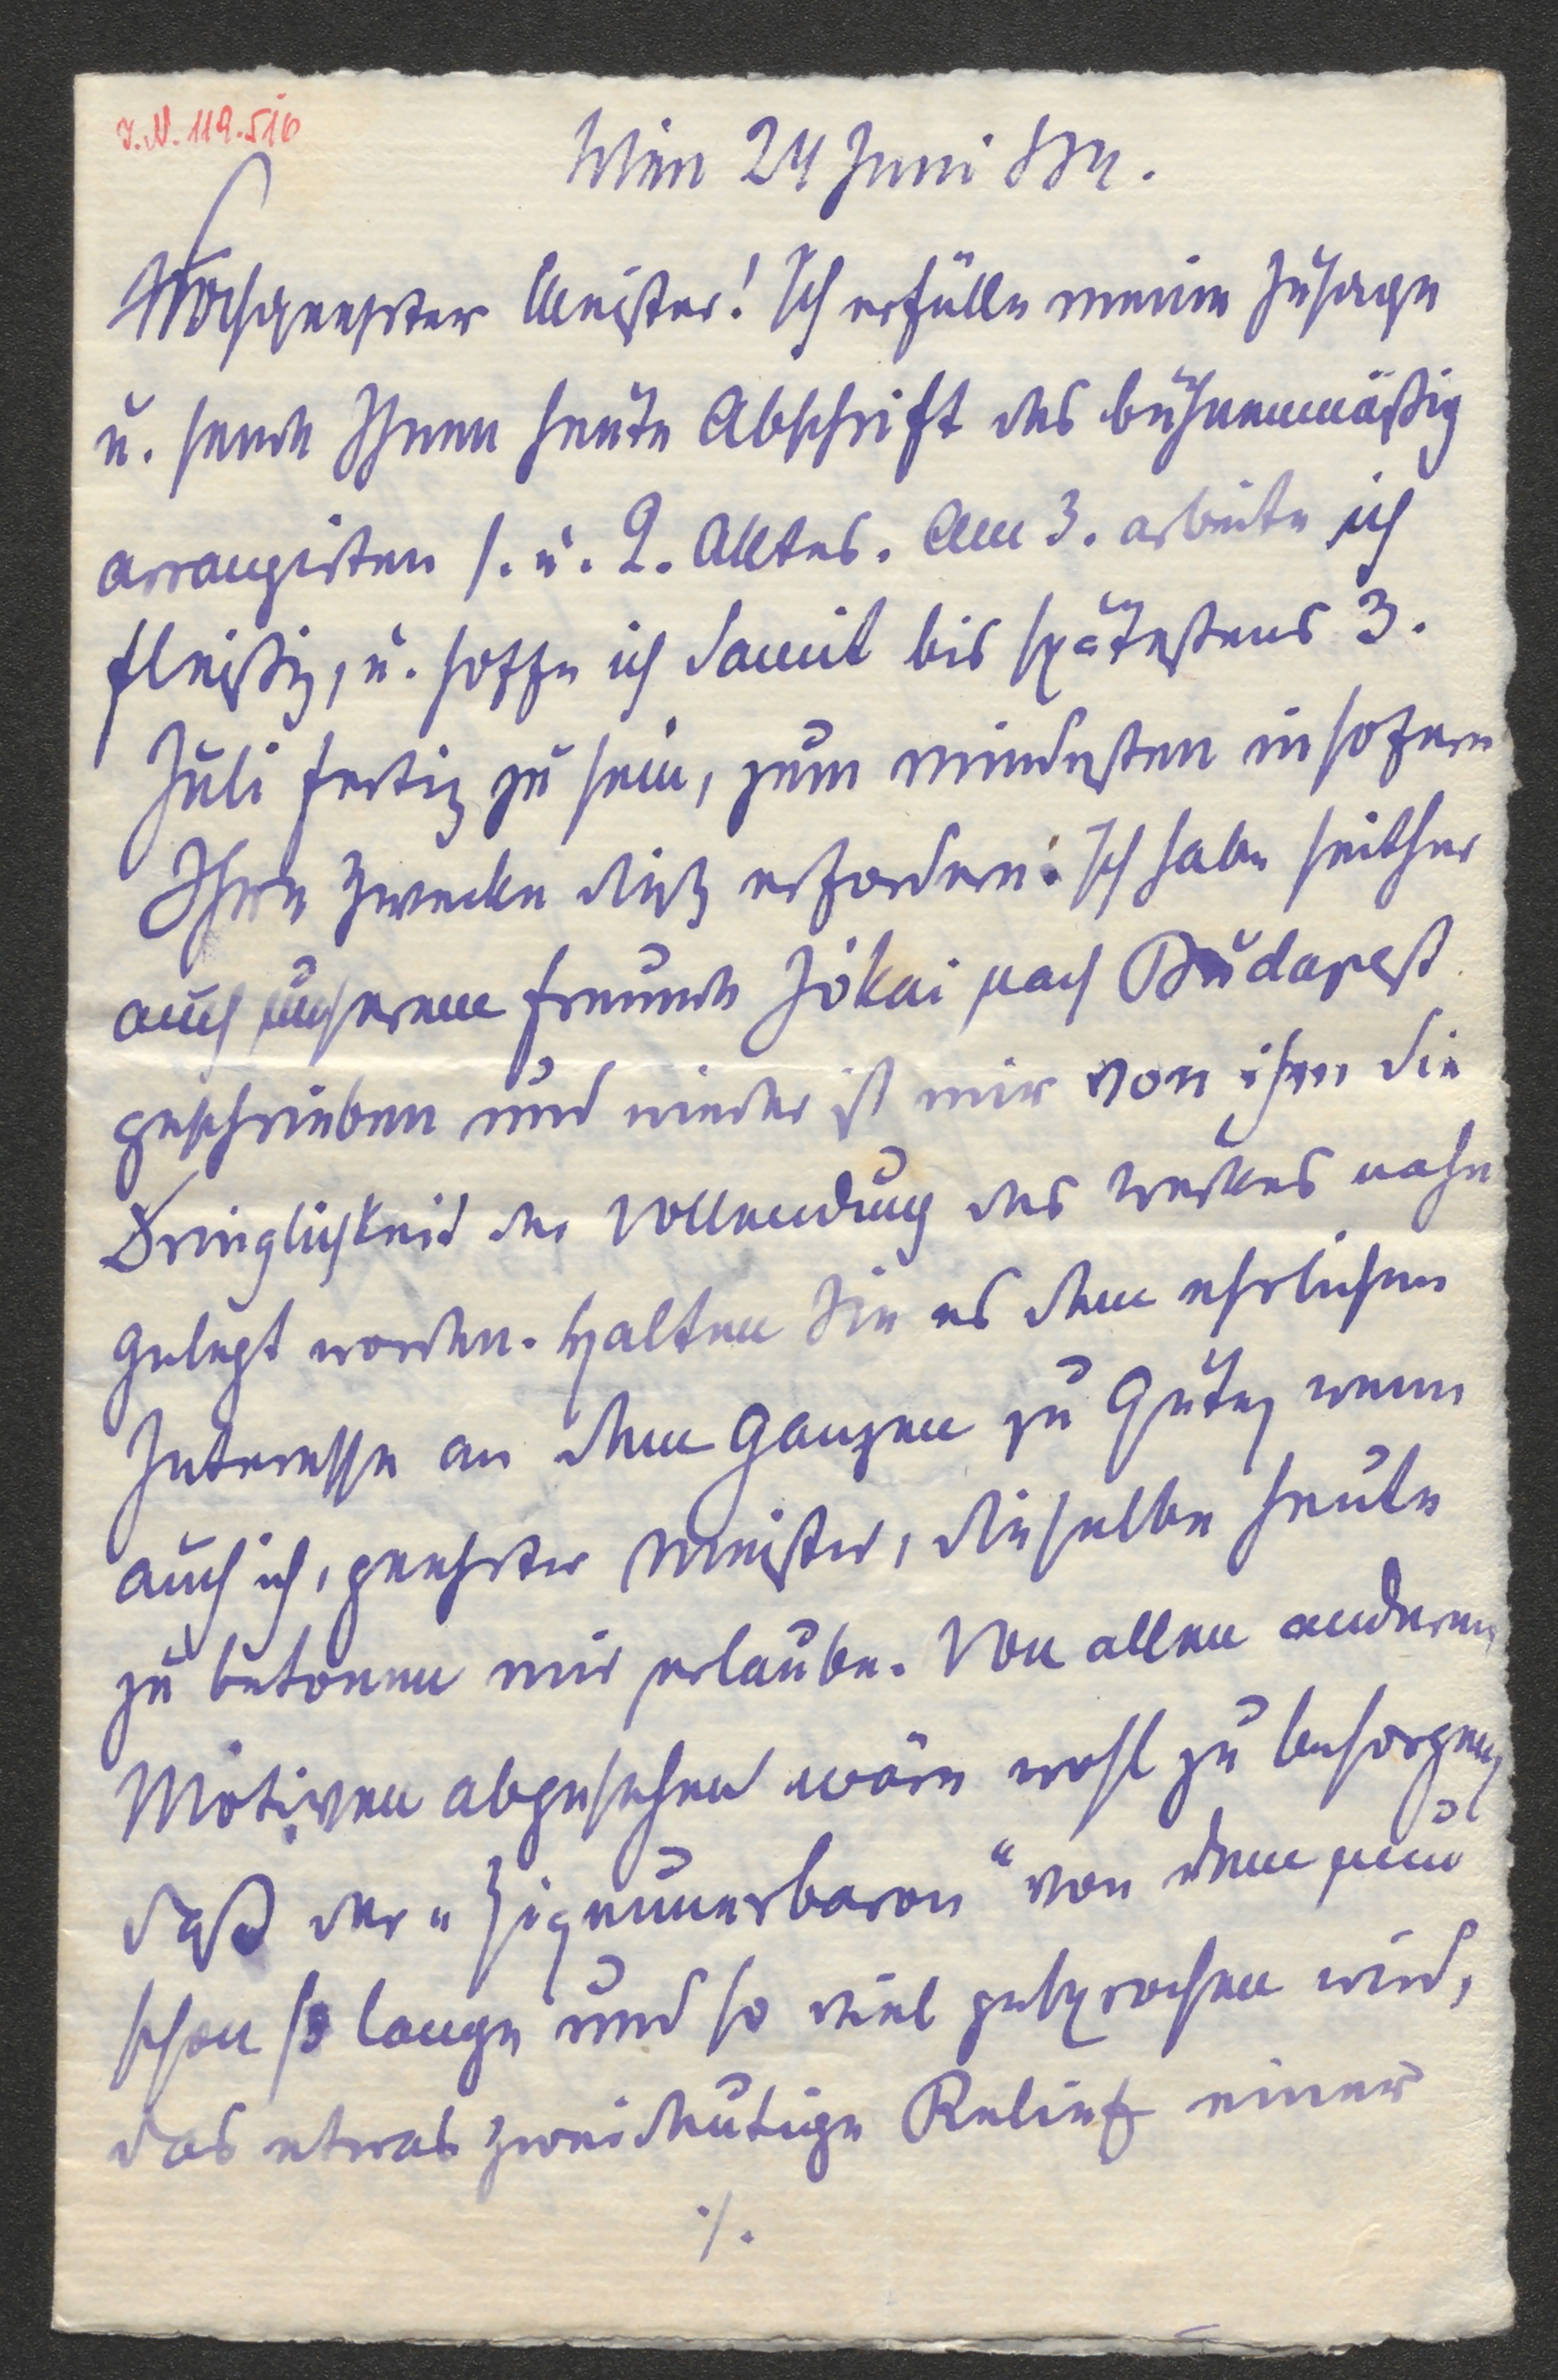 I.N. 119.516
Wien 24 Juni 884.
Hochgeehrter Meister! Ich erfülle meine Zusage
u. sende Ihnen heute Abschrift des bühnenmäßig
arrangirten 1. u. 2. Aktes. Am 3. arbeite ich
fleißig, u. hoffe ich damit bis spätestens 3.
Juli fertig zu sein, zum mindesten insofern
Ihre Zwecke dieß erfordern. Ich habe seither
auch unserem Freunde Jókai nach Budapest
geschrieben und wieder ist mir von ihm die
Dringlichkeit der Vollendung des Werkes nahe
gelegt worden. Halten Sie es dem ehrlichen
Interesse an dem Ganzen zu Gute, wenn
auch ich, geehrter Meister, dieselbe heute
zu betonen mir erlaube. Von allen anderen
Motiven abgesehen wäre wohl zu besorgen,
daß der „Zigeunerbaron“ von dem nun
schon so lange und so viel gesprochen wird,
das etwas zweideutige Relief einer
./.